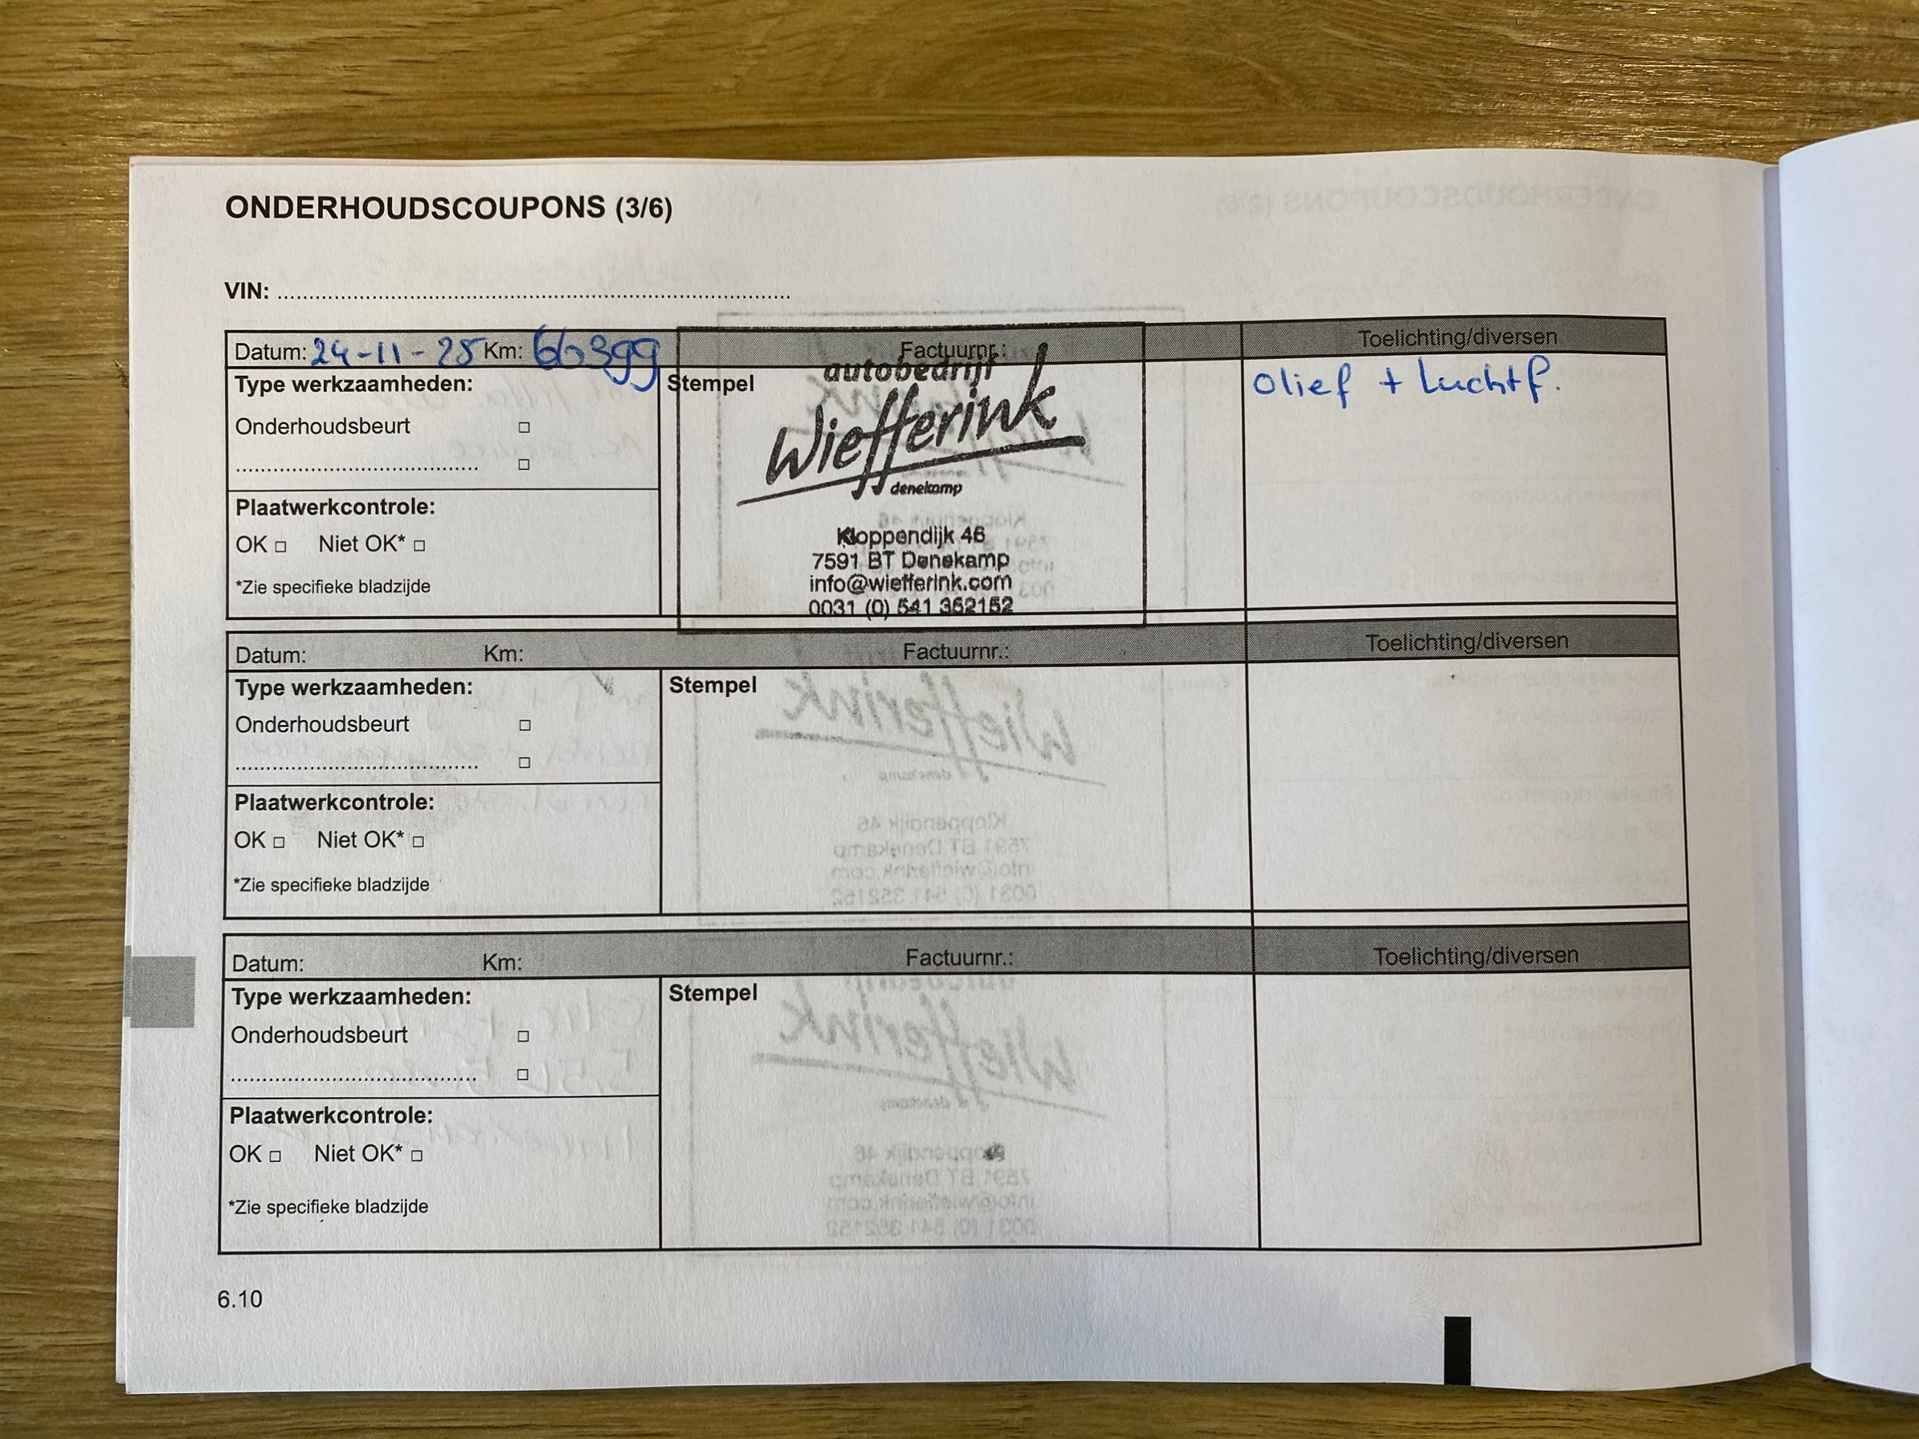 ONDERHOUDSCOUPONS (3/6)
VIN: ................................................................................
Datum: 24-11-25 Km: 66399 Factuurnr.: Toelichting/diversen
Type werkzaamheden:
Onderhoudsbeurt □
....................................... □
Plaatwerkcontrole:
OK □ Niet OK* □
*Zie specifieke bladzijde
Stempel
autobedrijf
Wiefferink
denekamp
Kloppendijk 46
7591 BT Denekamp
info@wiefferink.com
0031 (0) 541 352152
Olief + Luchtf.
Datum: Km: Factuurnr.: Toelichting/diversen
Type werkzaamheden:
Onderhoudsbeurt □
....................................... □
Plaatwerkcontrole:
OK □ Niet OK* □
*Zie specifieke bladzijde
Stempel
Datum: Km: Factuurnr.: Toelichting/diversen
Type werkzaamheden:
Onderhoudsbeurt □
....................................... □
Plaatwerkcontrole:
OK □ Niet OK* □
*Zie specifieke bladzijde
Stempel
6.10